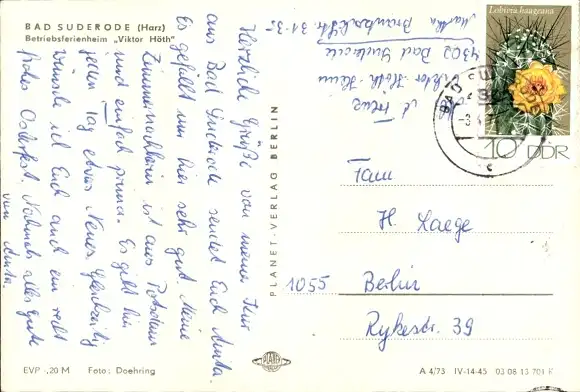 BAD SUDERODE (Harz)
Betriebsferienheim „Viktor Höth"
Herzliche Grüße von meiner Kur
aus Bad Suderode sendet Euch Anita.
Es gefällt mir hier sehr gut. Meine
Zimmernachbarin ist aus Potsdam
und einfach prima. Es gibt hier
jeden Tag etwas Neues. Gleichzeitig
wünsche ich Euch auch ein recht
frohes Osterfest. Nochmals alles gute
von Anita.
EVP ,20 M Foto: Doehring
PLANET-VERLAG BERLIN
PLANET
Martha
4302 Bad Suderode
Viktor Höth Heim
Lobivia haageana
10 DDR
BAD SU
Fam
H. Laege
1055 Berlin
Rykestr. 39
A 4/73 IV-14-45 03 06 13 701 K